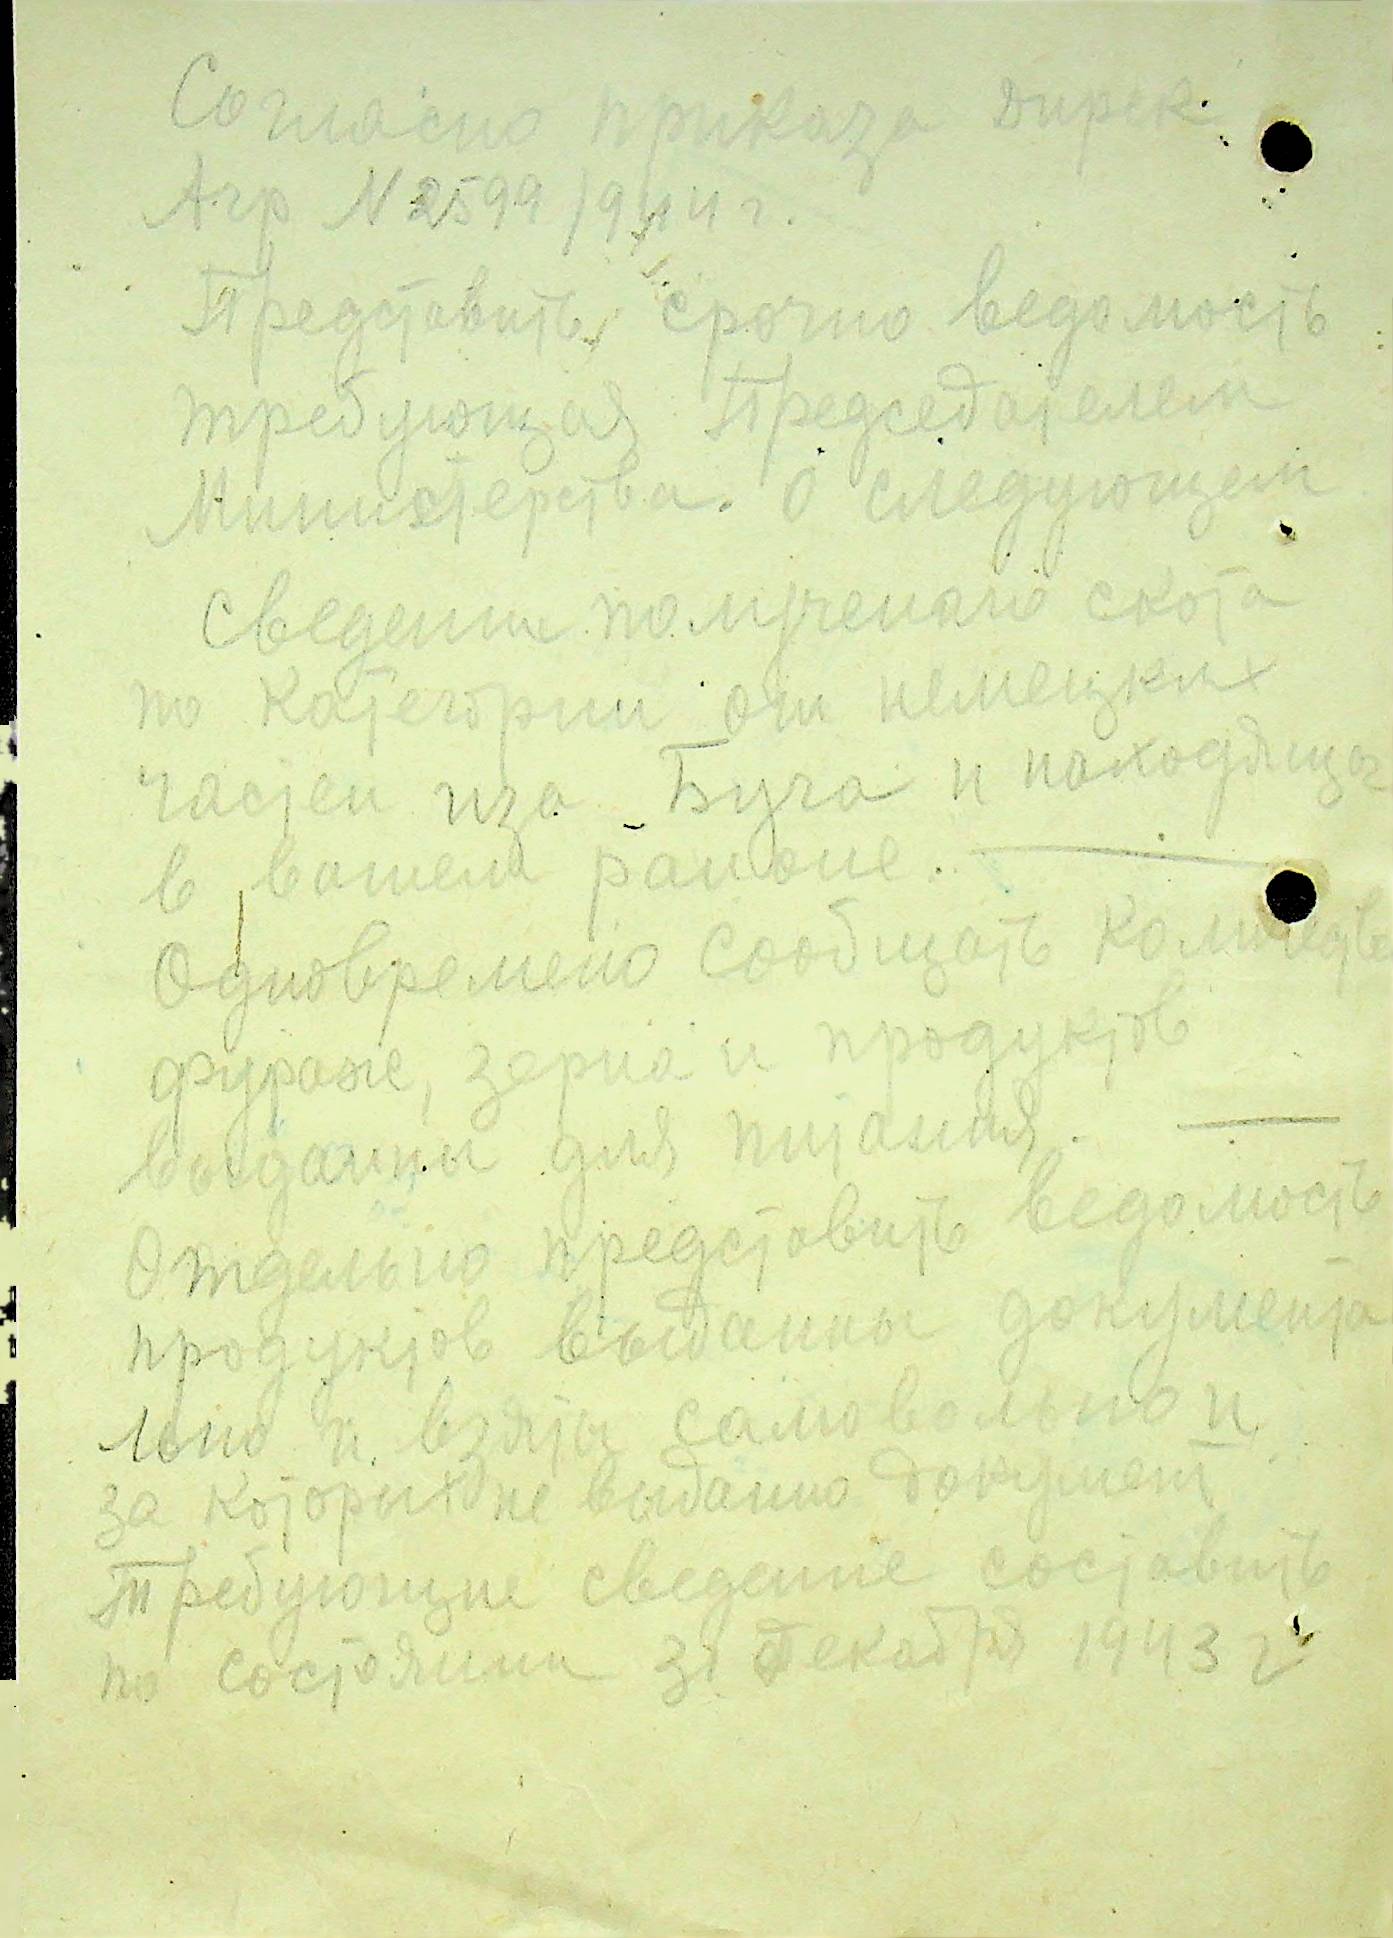 Согласно приказа Дирек.
Агр N 2599/944 г.
Представить срочно ведомость
требующая Председателем
Министерства. О следующем
Сведении полученаго скота
по категории от немецких
частей из за Буга и находяща
в вашем раионе.
Одновремено сообщать количестве
фураже, зерна и продуктов
выданны для питания.
Отдельно представить ведомость
продуктов выданны документа
льно и взяты самовольно и
за которых не выданно документ
Требующие сведение составить
по состоянии 31 Декабря 1943 г